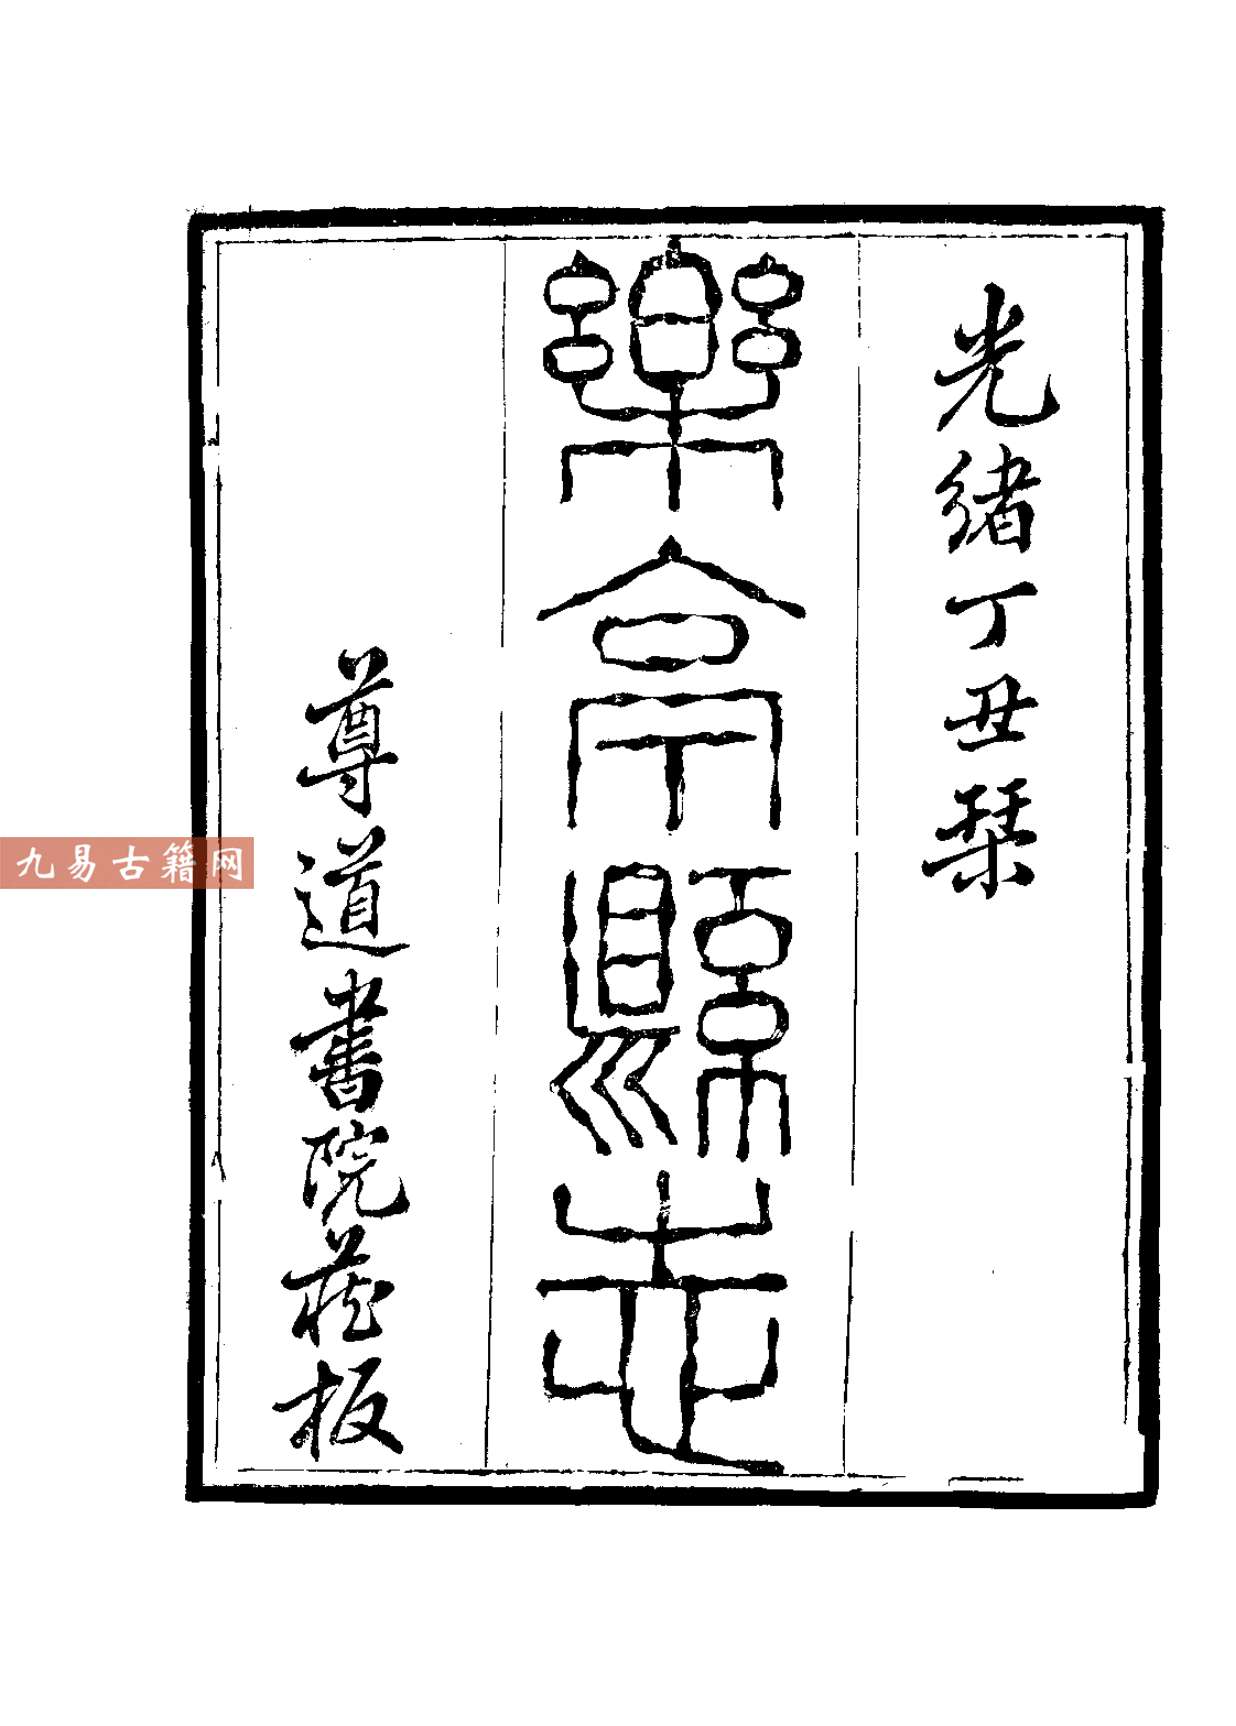 光緒丁丑栞
樂亭縣志
尊道書院藏板
九易古籍网